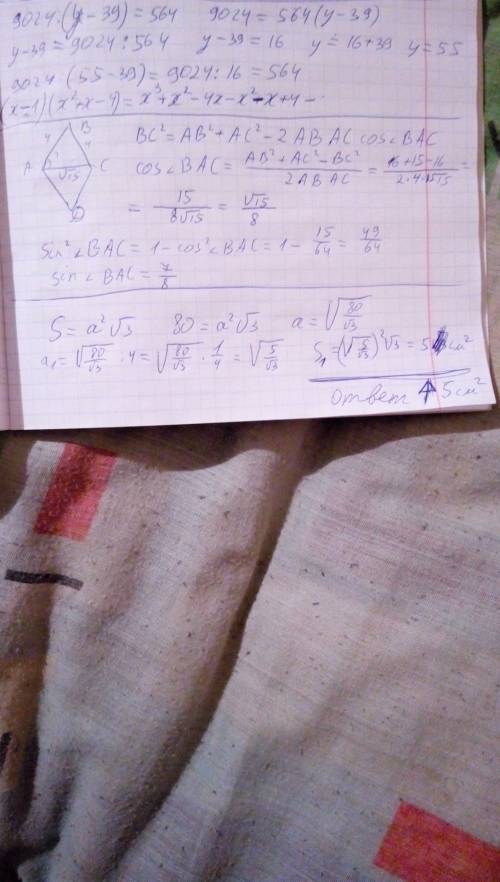 9024:(y-39)=564 9024=564(y-39)
y-39=9024:564 y-39=16 y=16+39 y=55
9024 (55-39)=9024:16=564
(x-1)(x²+x-4)=x³+x²-4x-x²-x+4
B
4 4
A C
√15
D
BC²=AB²+AC²-2AB AC cos∠BAC
cos∠BAC= (AB²+AC²-BC²)/(2AB AC) = (16+15-16)/(2·4·√15) =
= 15/(8√15) = √15/8
sin²∠BAC=1-cos²∠BAC=1- 15/64 = 49/64
sin∠BAC= 7/8
S=a²√3 80=a²√3 a=√(80/√3)
a₁=√(80/√3) :4=√(80/√3) · 1/4 =√(5/√3) S₁=(√(5/√3))²√3=5 см²
ответ 5см²